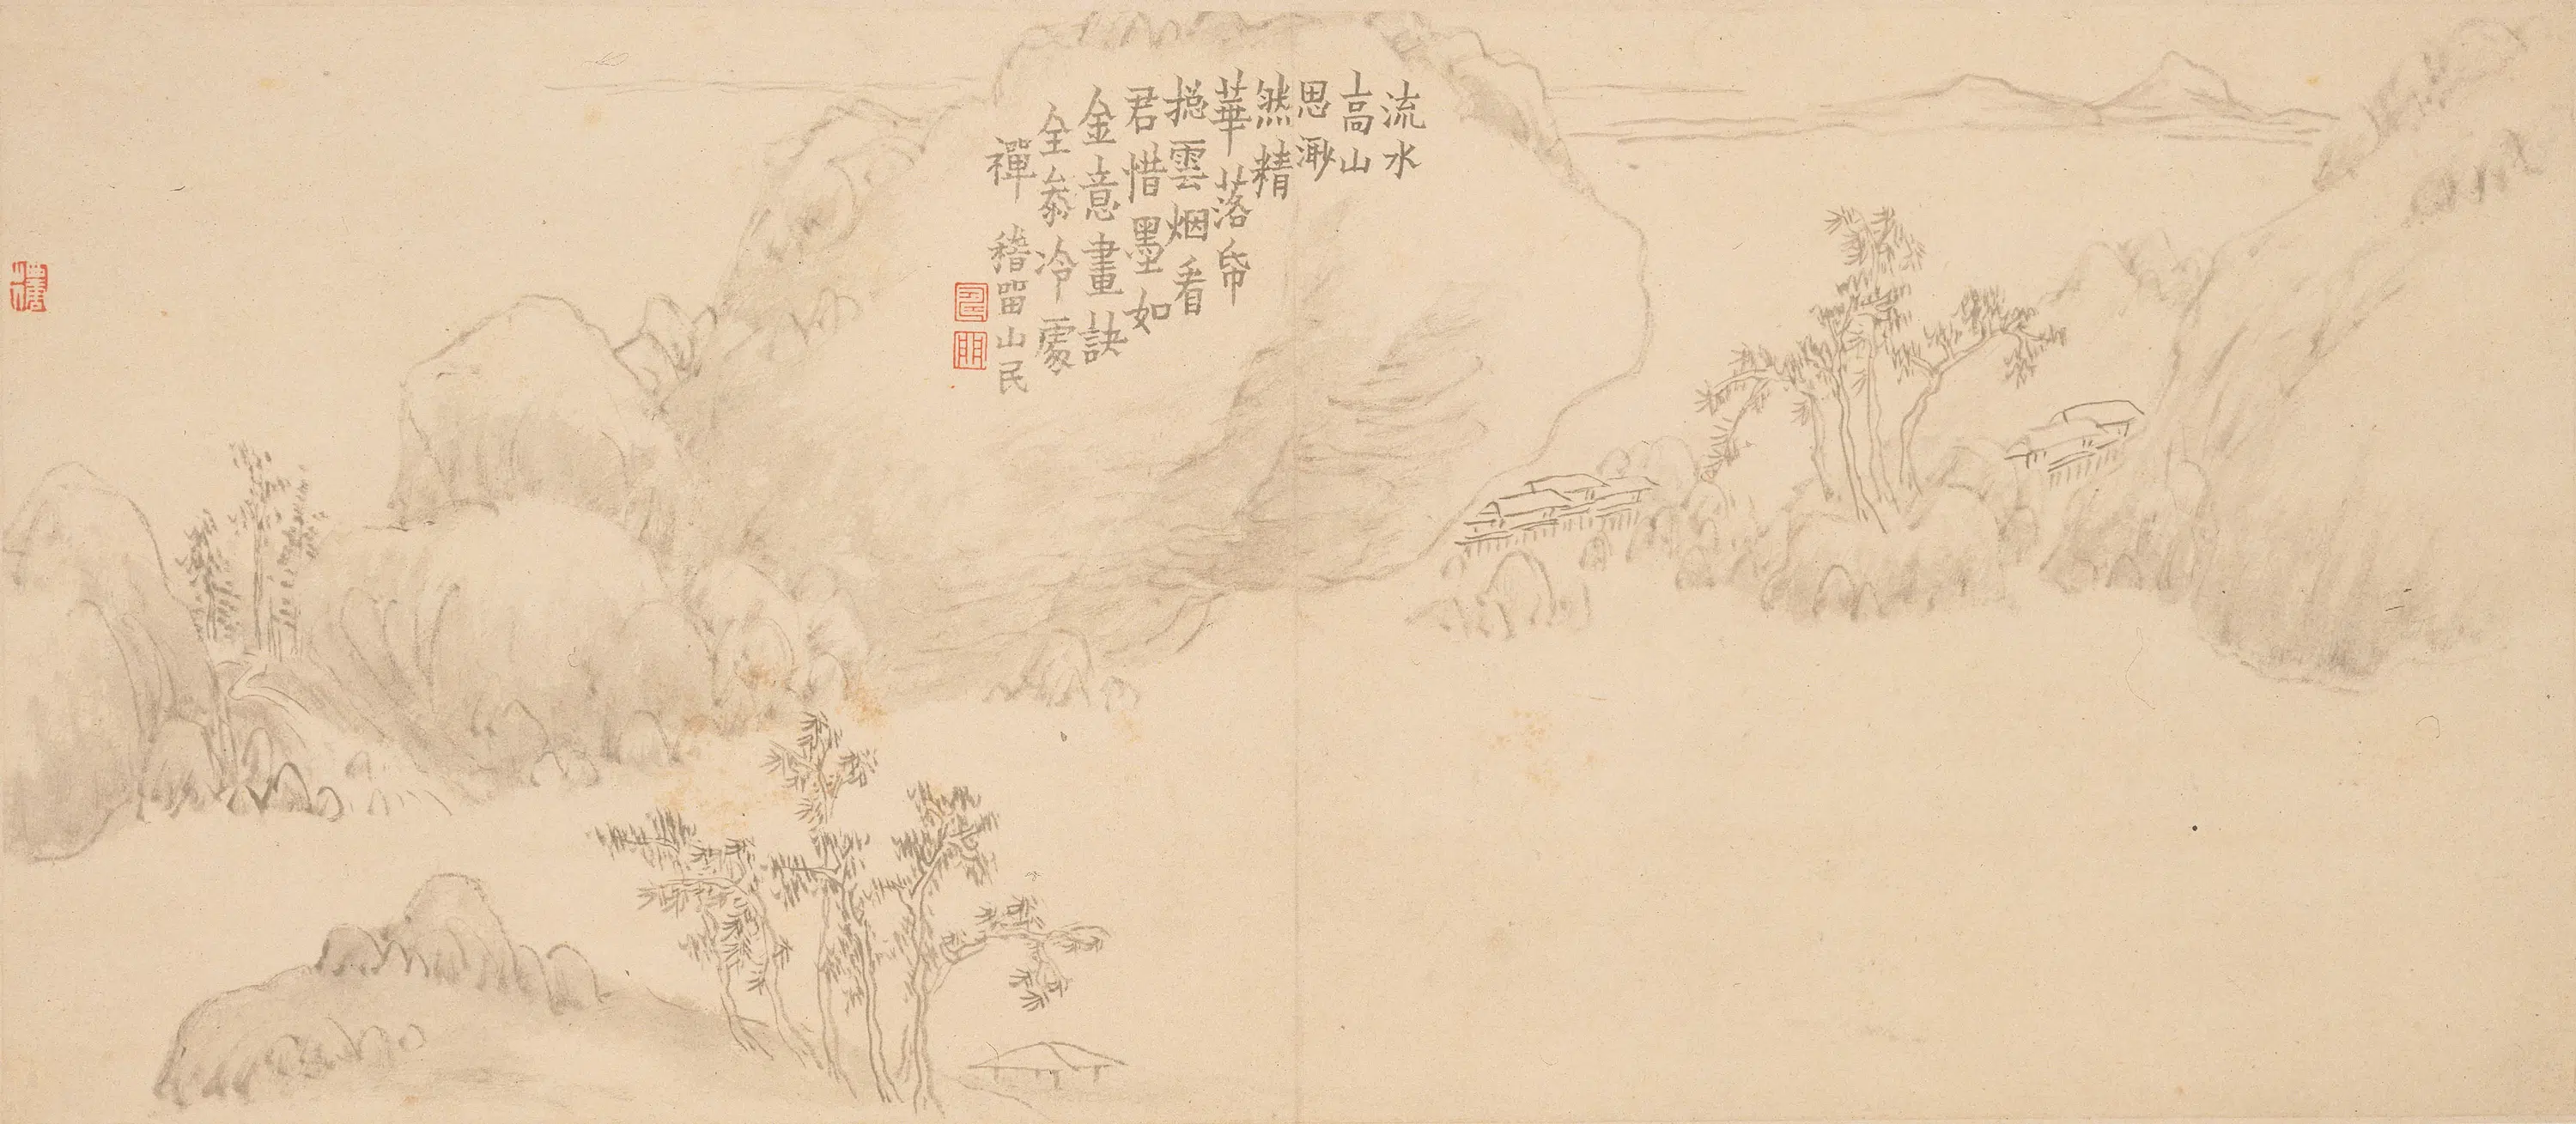 流水
高山
思渺
然精
華落帋
揔雲烟看
君惜墨如
金意畫訣
全叅冷處
禪 稽留山民